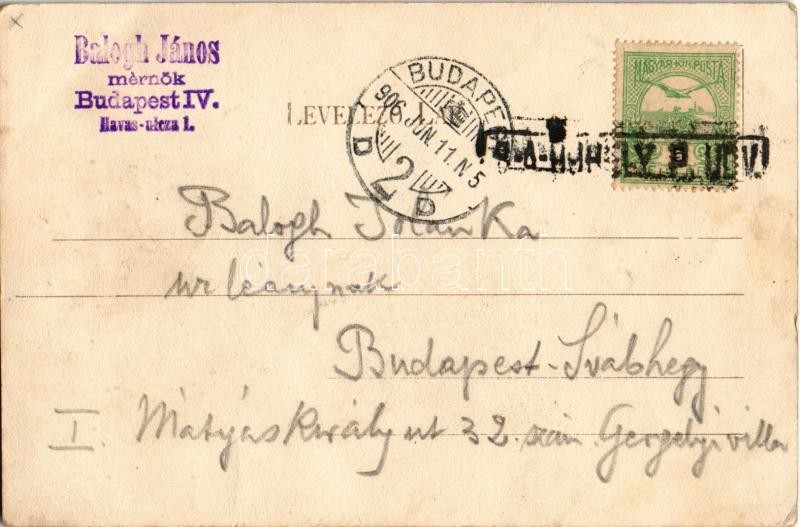 Balogh János
mérnök
Budapest IV.
Havas-utcza 1.
LEVELEZŐ
BUDAPEST
906 JUN. 11. N 5
2
D D
MAGYAR KIR. POSTA
Balogh Ilonka
úrleánynak
darabanth
Budapest-Svábhegy
I. Mátyás király ut 32. szám Gergelyi villa